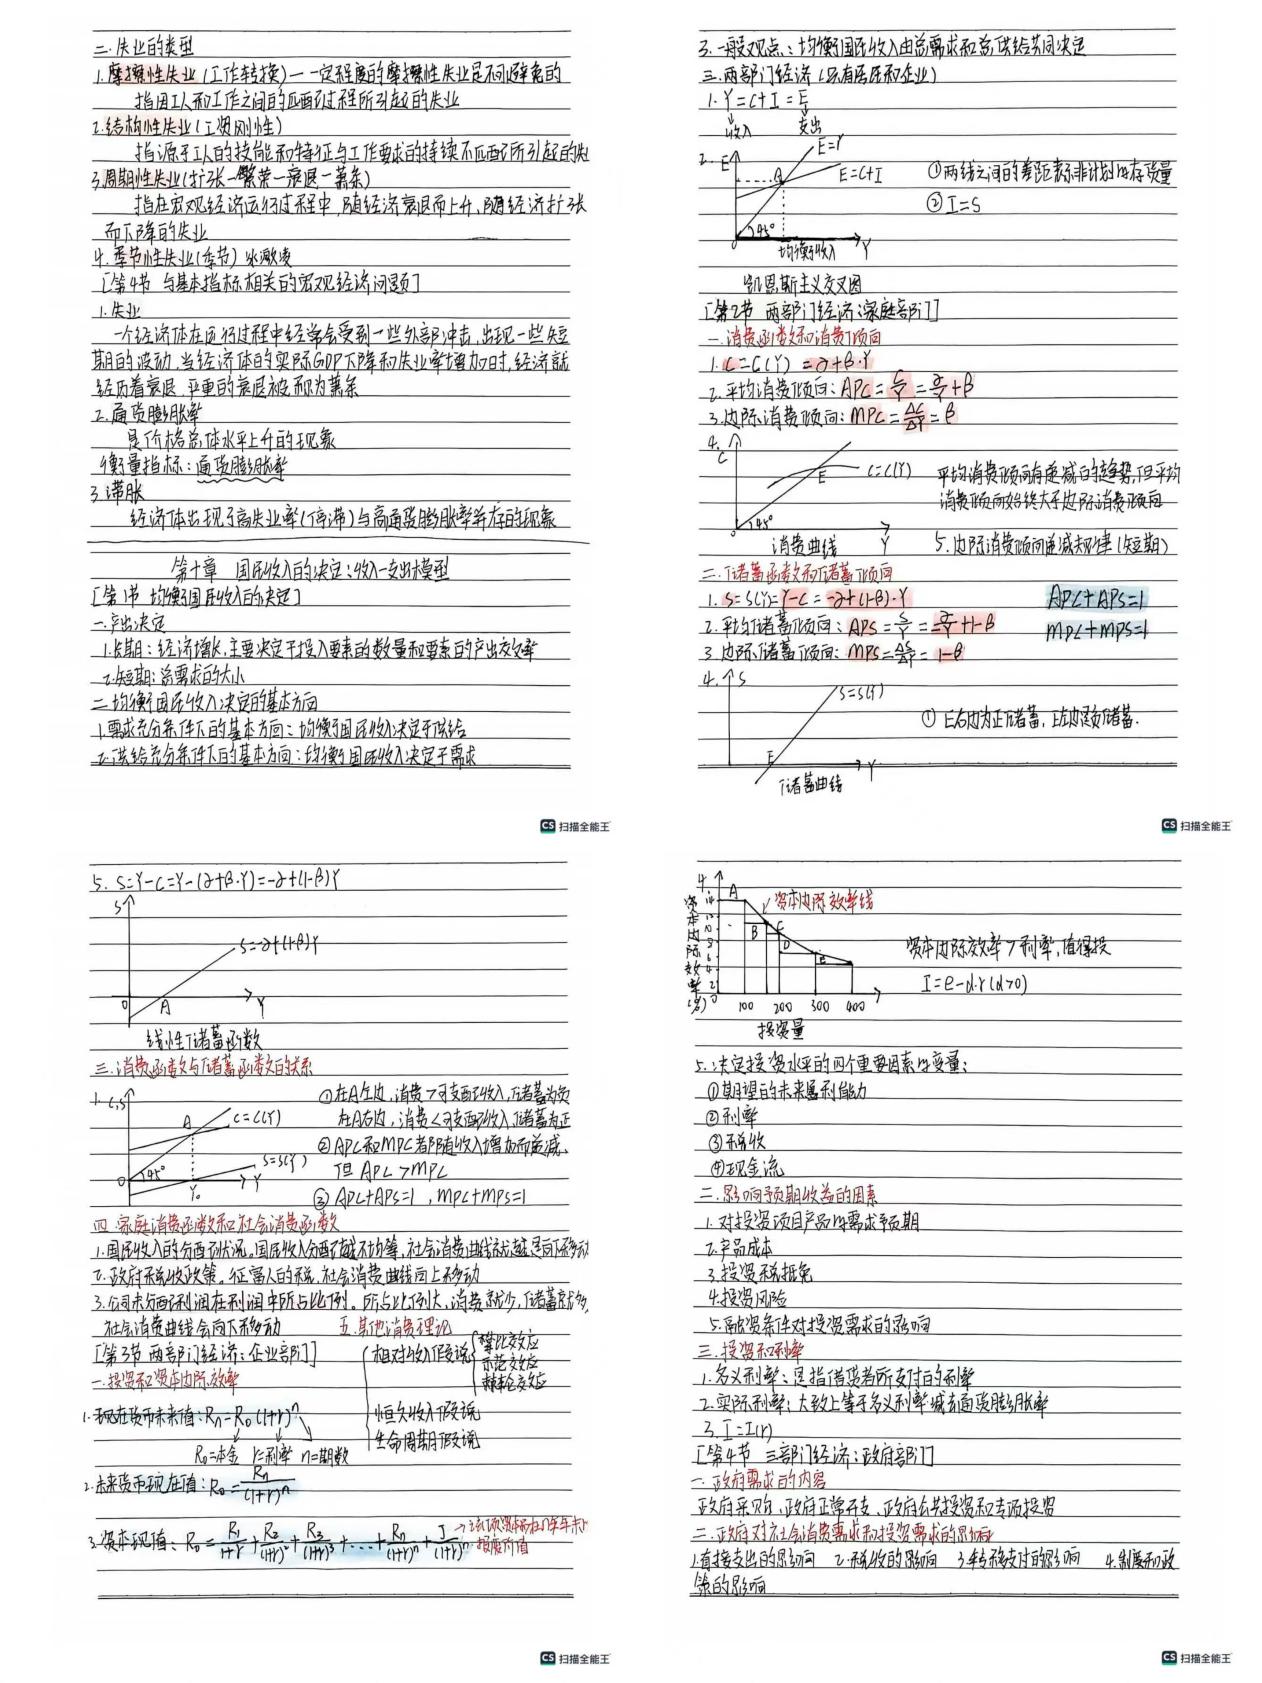 二.失业的类型
1.摩擦性失业(工作转换)—一定程度的摩擦性失业是不可避免的
指因工人和工作之间的匹配过程所引起的失业
2.结构性失业(工资刚性)
指源于工人的技能和特征与工作要求的持续不匹配所引起的失
3.周期性失业(扩张—繁荣—衰退—萧条)
指在宏观经济运行过程中,随经济衰退而上升,随经济扩张
而下降的失业
4.季节性失业(季节)冰激凌
[第4节 与基本指标相关的宏观经济问题]
1.失业
一个经济体在运行过程中经常会受到一些外部冲击,出现一些短
期的波动,当经济体的实际GDP下降和失业率增加时,经济就
经历着衰退,严重的衰退被称为萧条
2.通货膨胀率
是价格总体水平上升的现象
衡量指标:通货膨胀率
3.滞胀
经济体出现了高失业率(停滞)与高通货膨胀率并存的现象
第十章 国民收入的决定:收入—支出模型
[第1节 均衡国民收入的决定]
一.产出决定
1.长期:经济增长,主要决定于投入要素的数量和要素的产出效率
2.短期:总需求的大小
二.均衡国民收入决定的基本方向
1.需求充分条件下的基本方向:均衡国民收入决定于供给
2.供给充分条件下的基本方向:均衡国民收入决定于需求
CS 扫描全能王
3.一般观点:均衡国民收入由总需求和总供给共同决定
三.两部门经济(只有居民和企业)
1.Y=C+I=E
收入 支出
2. E E=Y
A E=C+I ①两线之间的差距表示非计划的存货量
②I=S
0 45° 均衡收入 Y
凯恩斯主义交叉图
[第2节 两部门经济:家庭部门]
一.消费函数和消费倾向
1.C=C(Y)=α+β·Y
2.平均消费倾向:APC=C/Y=α/Y+β
3.边际消费倾向:MPC=ΔC/ΔY=β
4. C C=C(Y) E 平均消费倾向有递减的趋势,但平均
消费倾向始终大于边际消费倾向
0 45° 消费曲线 Y 5.边际消费倾向递减规律(短期)
二.储蓄函数和储蓄倾向
1.S=S(Y)=Y-C=-α+(1-β)·Y APC+APS=1
2.平均储蓄倾向:APS=S/Y=-α/Y+1-β MPC+MPS=1
3.边际储蓄倾向:MPS=ΔS/ΔY=1-β
4. S S=S(Y)
①E右边为正储蓄,E左边是负储蓄.
E Y
储蓄曲线
CS 扫描全能王
5. S=Y-C=Y-(α+β·Y)=-α+(1-β)Y
S
S=-α+(1-β)Y
0 A Y
线性储蓄函数
三.消费函数与储蓄函数的关系
1. C,S ①在A左边,消费>可支配收入,储蓄为负
A C=C(Y) 在A右边,消费<可支配收入,储蓄为正
②APC和MPC都随收入增加而递减,
0 45° S=S(Y) Y 但APC>MPC
Y₀ ③APC+APS=1,MPC+MPS=1
四.家庭消费函数和社会消费函数
1.国民收入的分配状况。国民收入分配越不均等,社会消费曲线就越是向下移动
2.政府税收政策。征富人的税,社会消费曲线向上移动
3.公司未分配利润在利润中所占比例。所占比例大,消费就少,储蓄就多,
社会消费曲线会向下移动 五.其他消费理论
[第3节 两部门经济:企业部门] 相对收入假说 攀比效应 示范效应 棘轮效应
一.投资和资本边际效率
1.现在货币未来值:Rn=R₀(1+r)ⁿ 恒久收入假说
R₀=本金 r=利率 n=期数 生命周期假说
2.未来货币现在值:R₀=Rn/(1+r)ⁿ
3.资本现值:R₀=R₁/(1+r)+R₂/(1+r)²+R₃/(1+r)³+...+Rn/(1+r)ⁿ+J/(1+r)ⁿ →该项资本品在n年年末的
报废价值
CS 扫描全能王
4. 资本边际效率(%)
14 12 10 8 6 4 2 0
A B C D E 资本边际效率线
资本边际效率>利率,值得投
I=e-d·r(d>0)
100 200 300 400
投资量
5.决定投资水平的四个重要因素的变量:
①期望的未来盈利能力
②利率
③税收
④现金流
二.影响预期收益的因素
1.对投资项目产品的需求预期
2.产品成本
3.投资税抵免
4.投资风险
5.融资条件对投资需求的影响
三.投资和利率
1.名义利率:是指借贷者所支付的利率
2.实际利率:大致上等于名义利率减去通货膨胀率
3.I=I(r)
[第4节 三部门经济:政府部门]
一.政府需求的内容
政府采购、政府正常开支、政府公共投资和专项投资
二.政府对社会消费需求和投资需求的影响
1.直接支出的影响 2.税收的影响 3.转移支付的影响 4.制度和政
策的影响
CS 扫描全能王